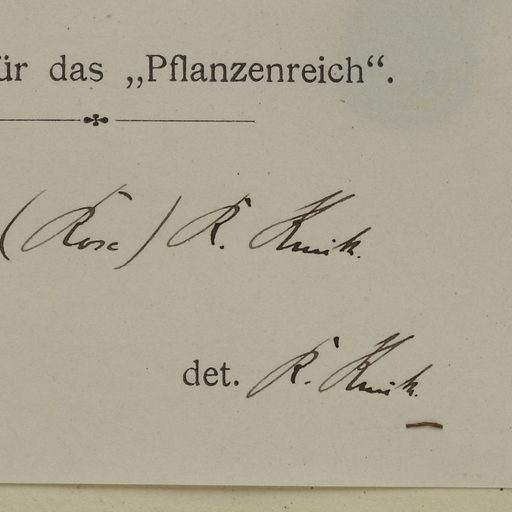 ür das „Pflanzenreich“.
(Rose) R. Knuth.
det. R. Knuth.